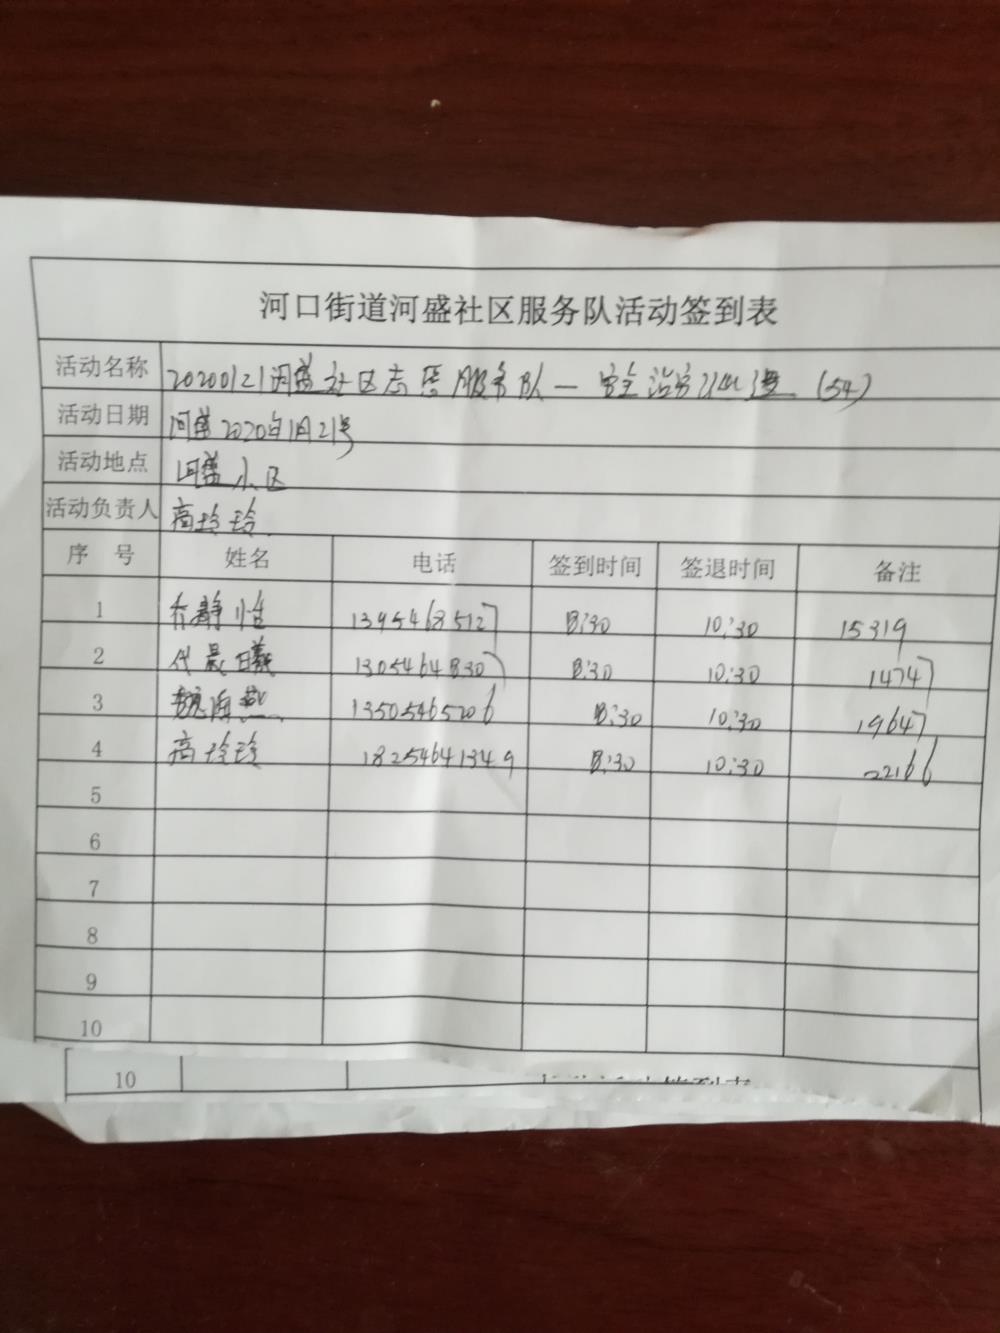 河口街道河盛社区服务队活动签到表
活动名称 20200121河盛社区志愿服务队一安全治安巡逻(54)
活动日期 河盛2020年1月21号
活动地点 河盛小区
活动负责人 高玲玲
序 号 姓名 电话 签到时间 签退时间 备注
1 静怡 13954685127 8:30 10:30 15319
2 代晨曦 13054648307 8:30 10:30 14747
3 魏海燕 13505465206 8:30 10:30 19647
4 高玲玲 18254641349 8:30 10:30 22166
5
6
7
8
9
10
10